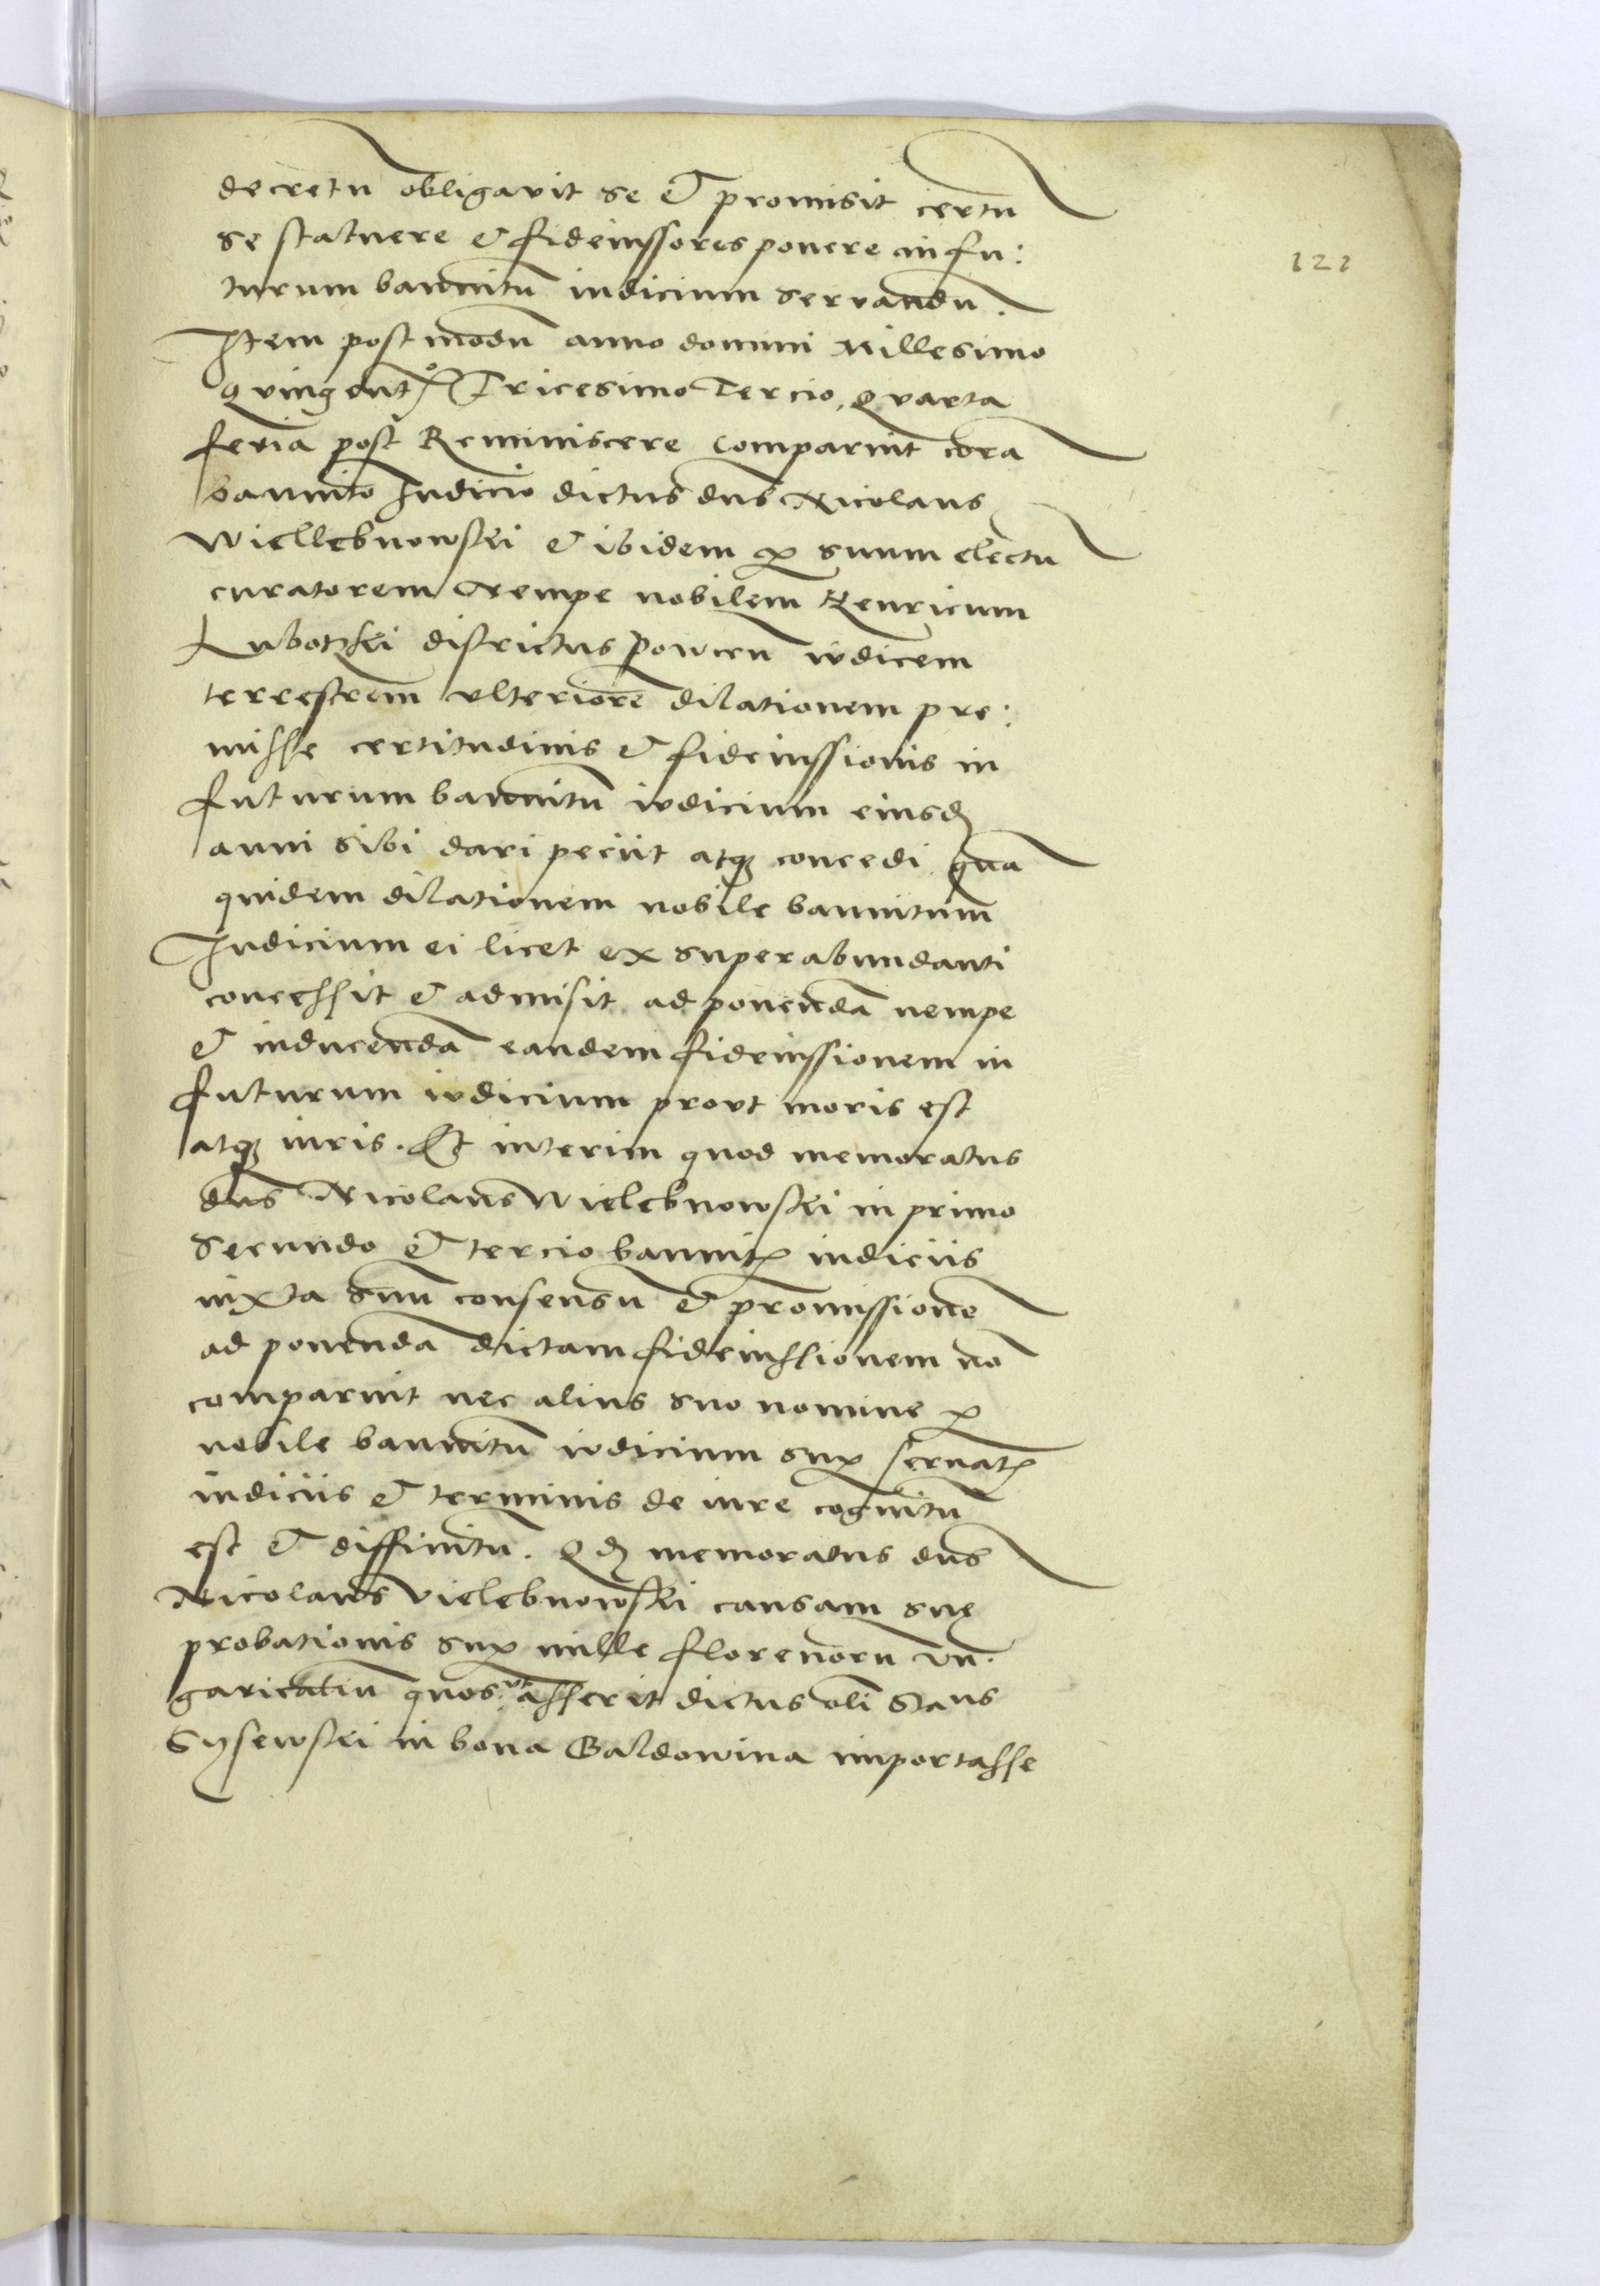 121
decretu obligavit se et promisit certu
se statuere et fideiussores ponere in fu:
turum bannitu iudicium servandu.
Item post modu anno domini Millesimo
quingento Tricesimo Tercio, Quarta
feria post Reminiscere comparuit cora
bannito Iudicio dictus dns Nicolaus
Wiellebnowski et ibidem p suum electu
curatorem Nempe nobilem Henricum
Lubotzki districtus powcen iudicem
terrestrem ulteriore dilationem pre:
misse certitudinis et fideiussionis in
futurum bannitu iudicium eiusd
anni sibi dari peciit atq concedi qua
quidem dilationem nobile bannitum
Iudicium ei licet ex superabundanti
concessit et admisit ad ponenda nempe
et inducenda eandem fideiussionem in
futurum iudicium prout moris est
atq iuris. Et interim quod memoratus
dns Nicolaus Wielebnowski in primo
secundo et tercio bannit iudiciis
iuxta suu consensu et promissione
ad ponenda dictam fideiussionem no
comparuit nec alius suo nomine p
nobile bannitu iudicium sup servat
iudiciis et terminis de iure cognitu
est et diffinitu. Qd memoratus dns
Nicolaus Vielebnowski causam sue
probationis sup mille florenoru vn.
garicaliu quos ut asserit dictus oli Staus
Sysewski in bona Baldowina importasse